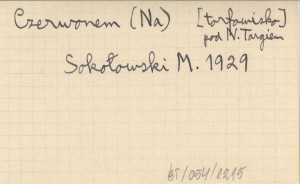 Czerwonem (Na) [torfowisko]
pod N. Targiem
Sokołowski M. 1929
BS/054/1215